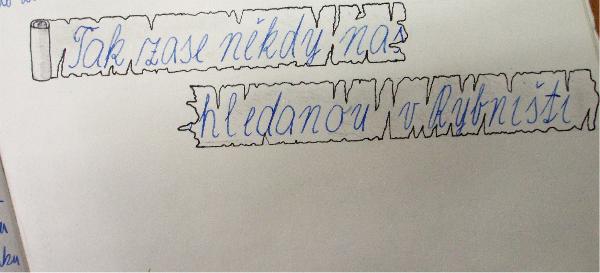 Tak zase někdy nas
hledanou v Rybništi